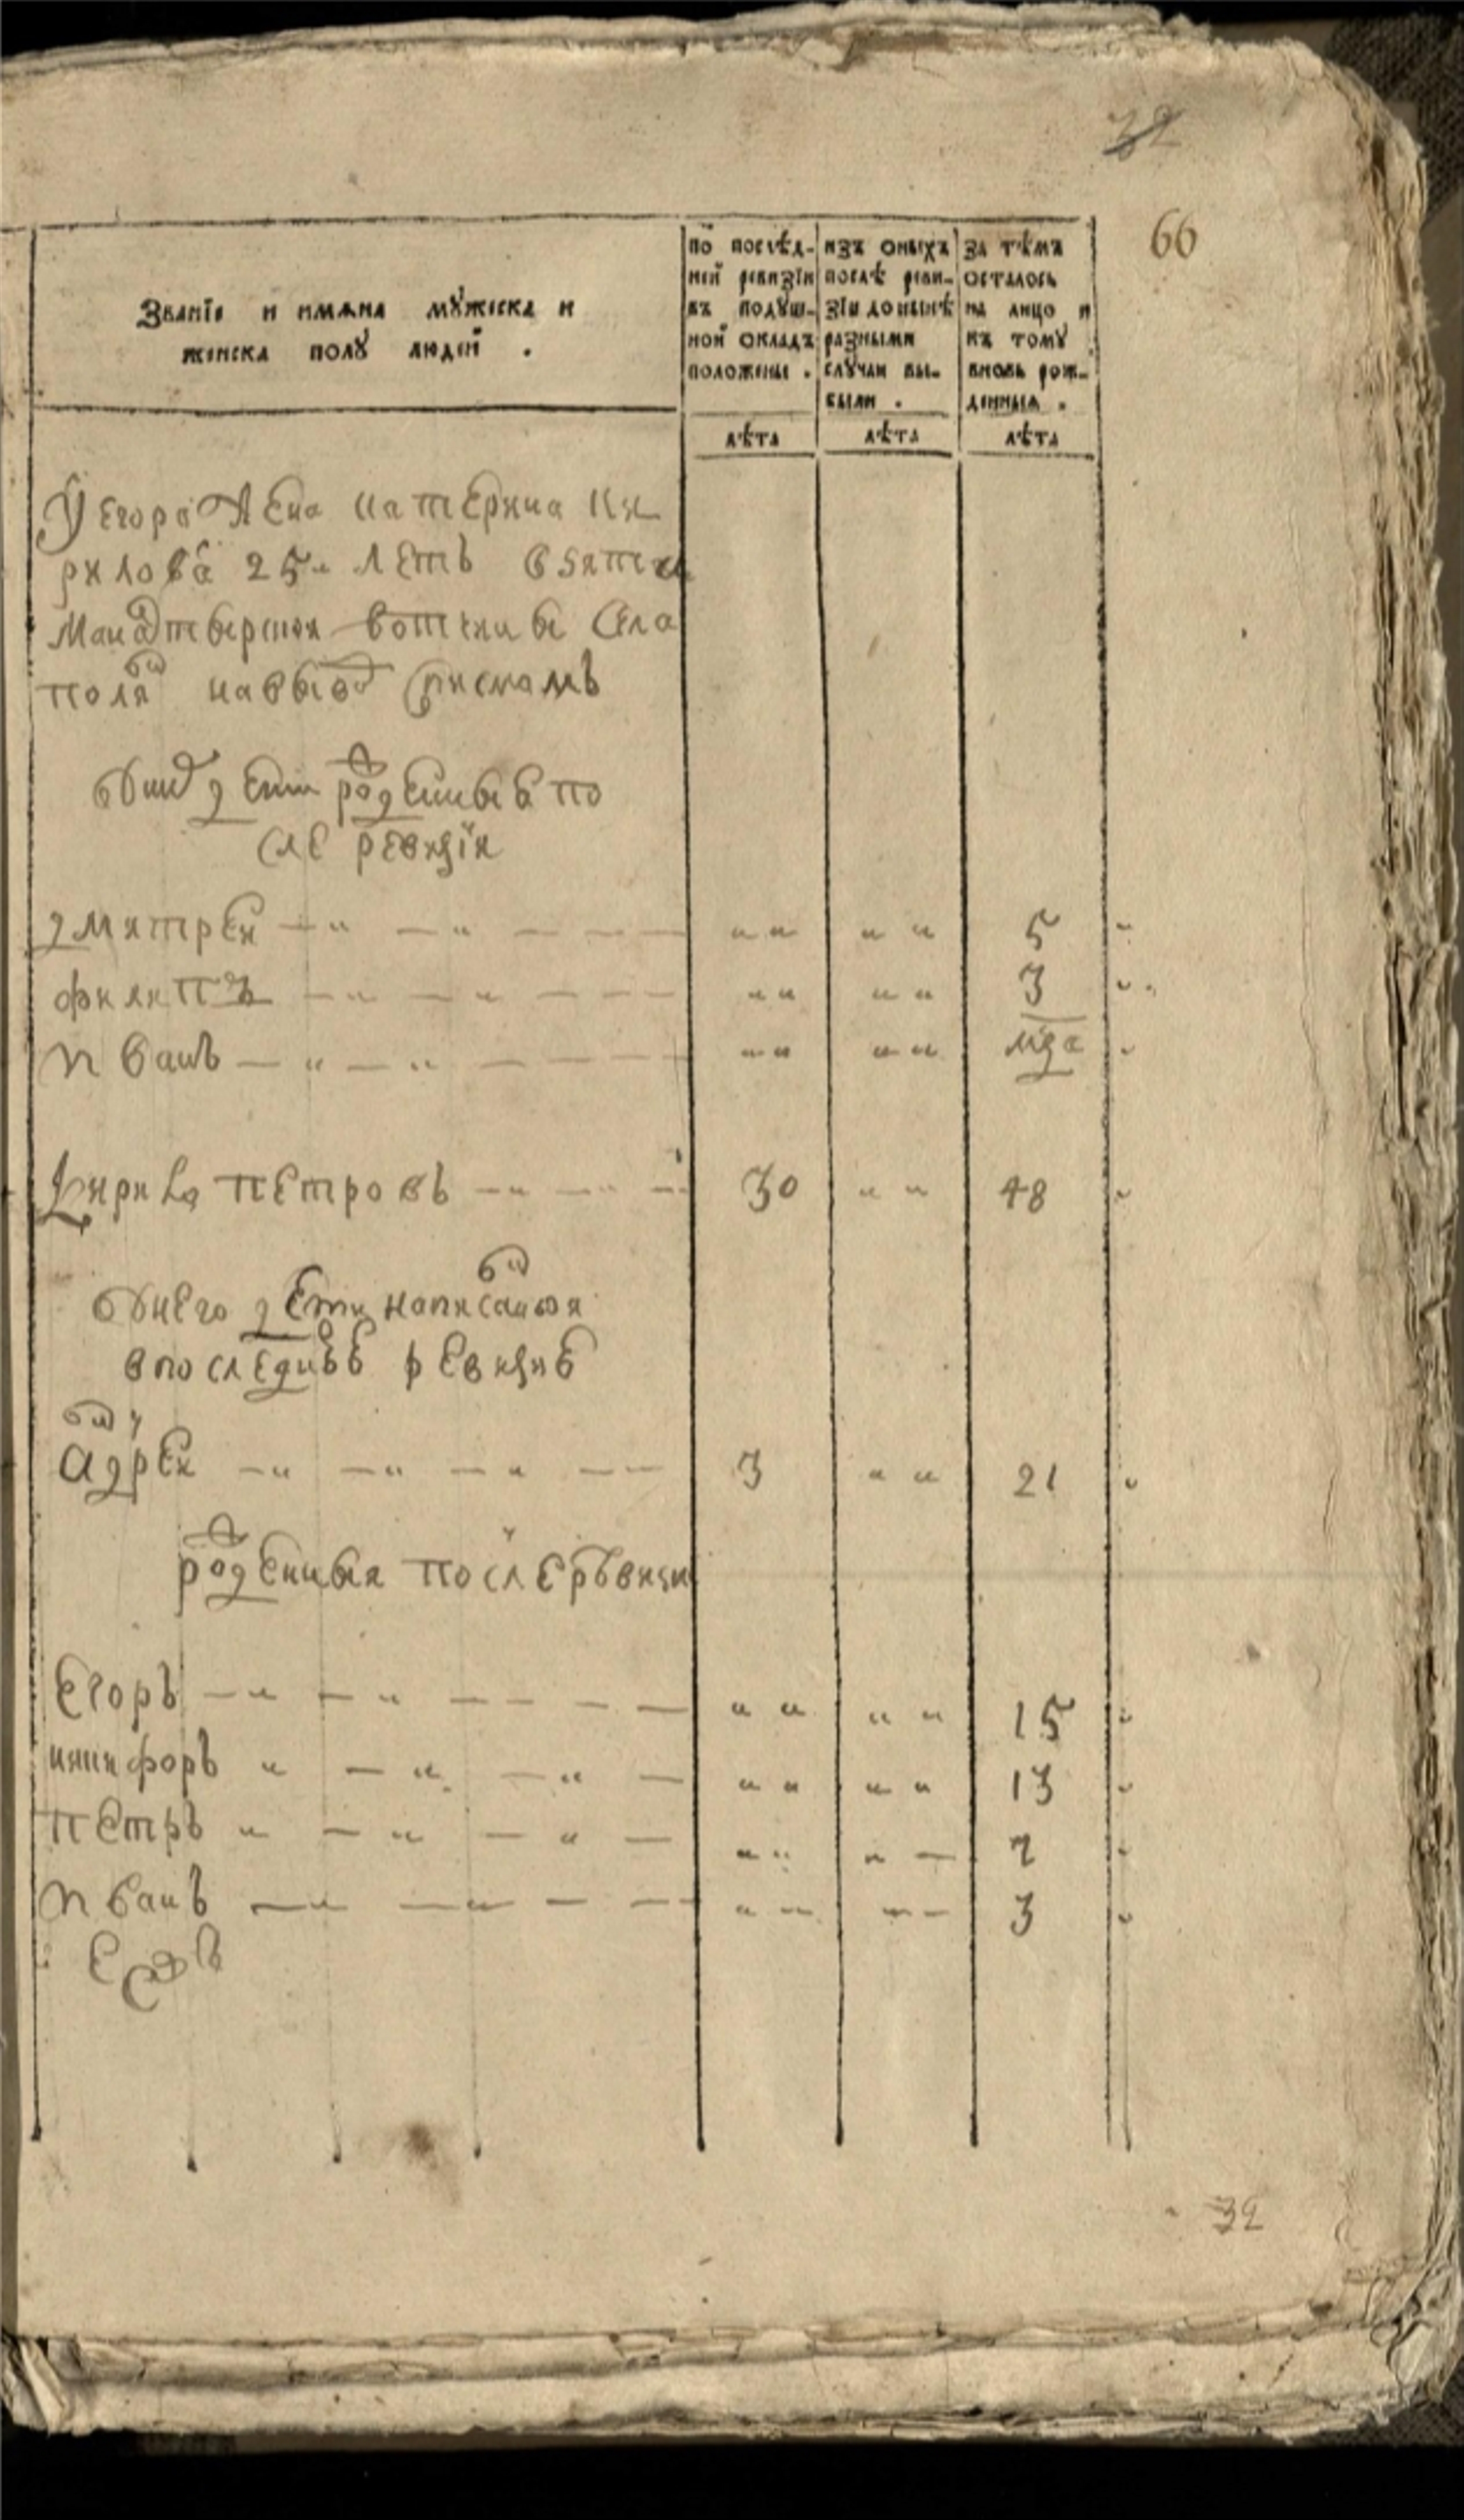 32
66
Званїе и имѧна мꙋжеска и
женска полꙋ людей .
по послѣд-
ней ревизїи
въ подꙋш-
ной окладъ
положены .
изъ оныхъ
послѣ реви-
зїи донынѣ
разными
слꙋчаи вы-
были .
за тѣмъ
осталось
на лицо и
къ томꙋ
вновь рож-
денныя .
лѣта лѣта лѣта
У Егора жена катерина ки
рилова 25 летъ взята
вотчины села
поля
дети роденныя по
сле ревизїи
дмитрей 5
филипъ 3
иванъ
Кирила петровъ 30 48
У него дети написанныя
в последней ревизии
Адрей 3 21
роденныя после ревизи
Егоръ 15
никифоръ 13
петръ 7
иванъ 3
32